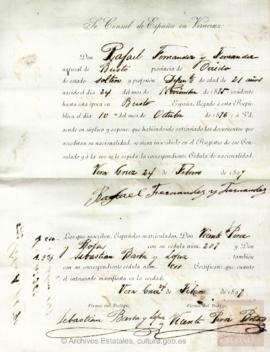 Sr. Consul de España en Veracruz:
Don Rafael Fernandez y Fernandez
natural de Busto provincia de Oviedo
de estado soltero y profesión de edad de 21 años
nacido el dia 24 del mes de Noviembre de 1875 residente
hasta esta época en Busto España, llegado á esta Repú-
blica el 10 del mes de Octubre de 1896 á Vd.
atento suplica y expone: que habiendo extraviado los documentos que
acrediten su nacionalidad, se sirva inscribirle en el Registro de ese Consu-
lado y á la vez se le expida la correspondiente Cédula de nacionalidad.
Veracruz 24 de Febrero 1897
Rafael Fernandez y Fernandez
Los que suscriben, Españoles matriculados Don Vicente
y Rojas con cédula núm. 207 y Don
Sebastian y Lopez también
con su correspondiente cédula núm. Certifican: que cuanto
el interesado manifiesta es la verdad.
Veracruz Febrero 1897
Firma del Testigo, Firma del Testigo,
Sebastian y Lopez Vicente
© Archivos Estatales, cultura.gob.es